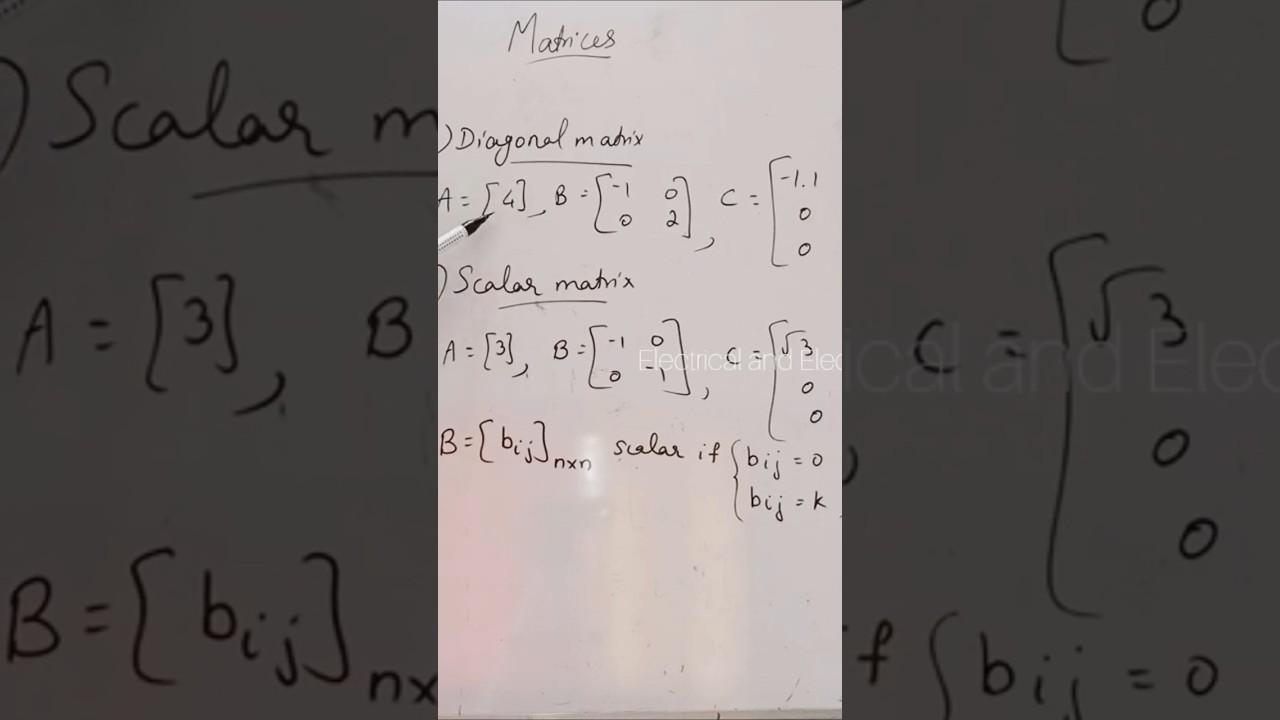 Matrices
) Diagonal matrix
A = [4], B = [-1 0
0 2], C = [-1.1
0
0
) Scalar matrix
A = [3], B = [-1 0
0 -1], C = [√3
0
0
Electrical and Elec
B = [bij]n×n scalar if { bij = 0
bij = k